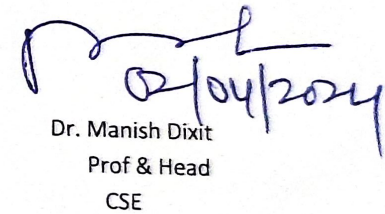 02/04/2024
Dr. Manish Dixit
Prof & Head
CSE